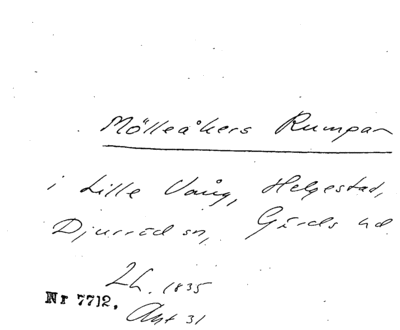 Mölleåkers Rumpan
i Lille Vång, Helgestad,
Djurröd sn, Gärds hd
Lh. 1835
Nr 7712.
Akt 31